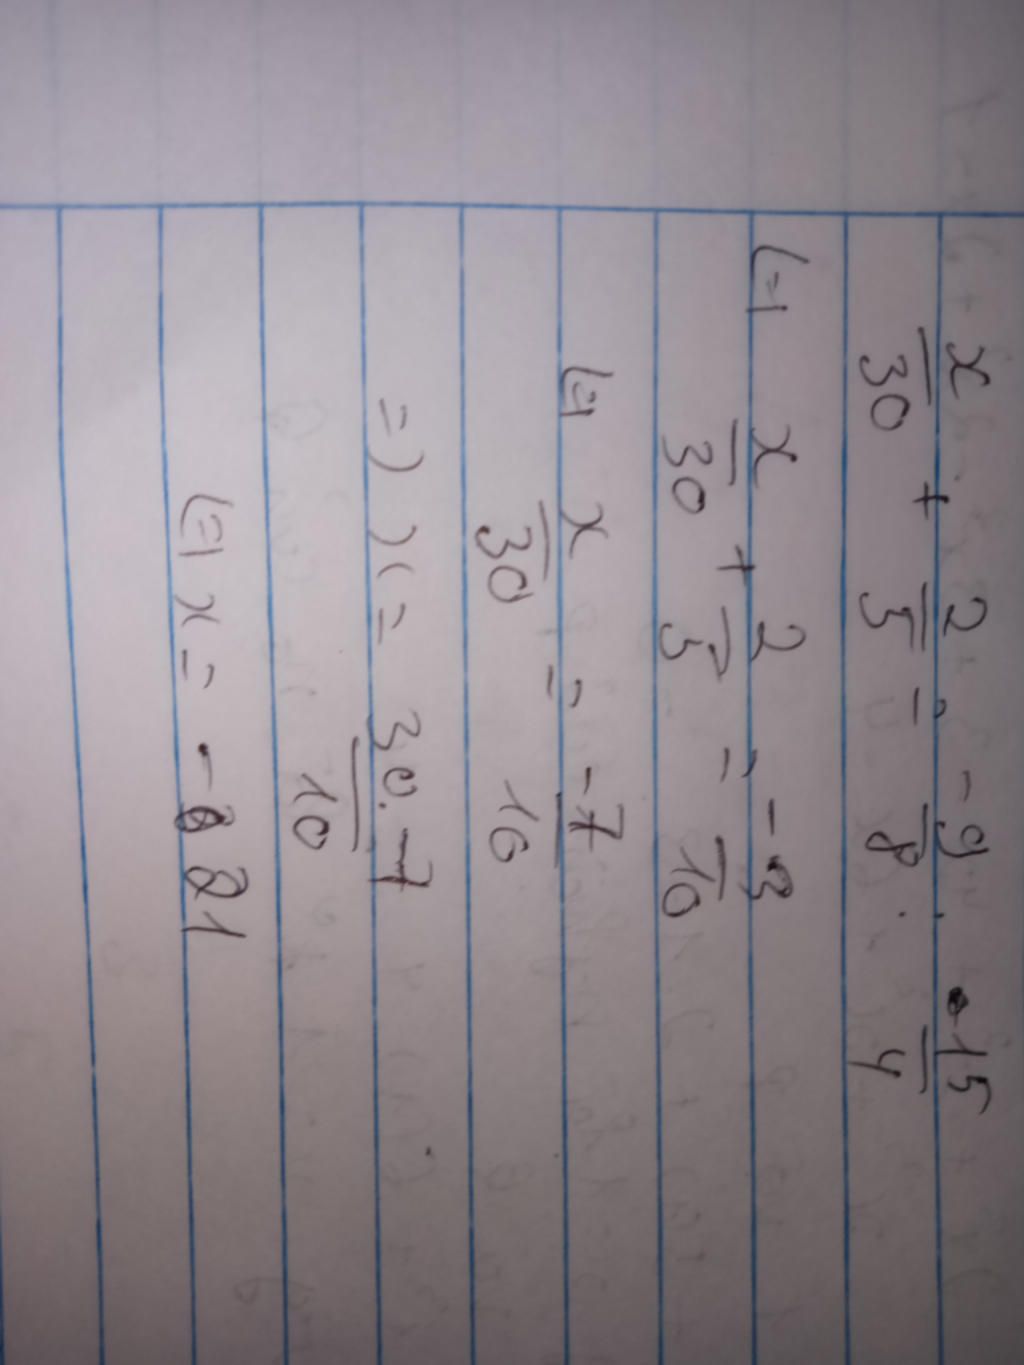 x/30 + 2/5 = -9/8 . 15/4
<=> x/30 + 2/5 = -3/10
<=> x/30 = -7/10
=> x = 30.-7/10
<=> x = -21